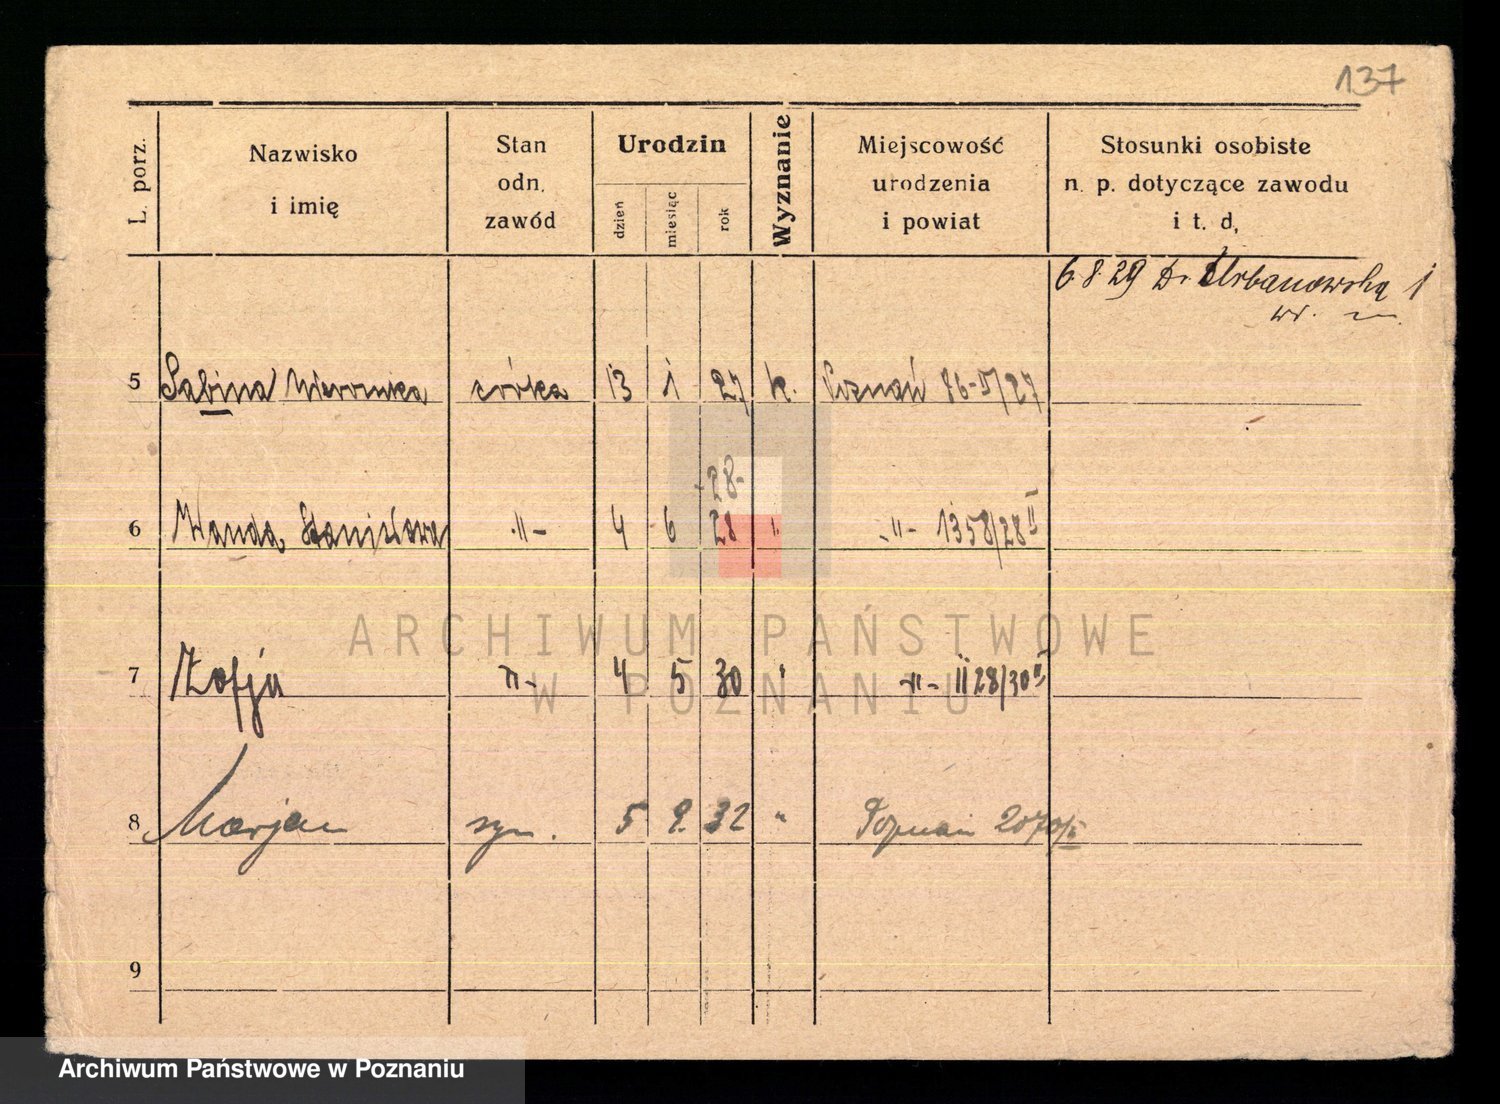 137
L. porz.
Nazwisko
i imię
Stan
odn.
zawód
Urodzin
dzień
miesiąc
rok
Wyznanie
Miejscowość
urodzenia
i powiat
Stosunki osobiste
n. p. dotyczące zawodu
i t. d.
6.8.29 Dr Urbanowską 1
5 Sabina Weronika córka 13 1 27 k. Poznań 76-II/27
-28-
6 Wanda Stanisława -"- 4 6 28 " -"- 1358/28 II
7 Zofja -"- 4 5 30 " -"- 1128/30 II
8 Marjan syn. 5 9. 32 " Poznań 2070/II
9
ARCHIWUM PAŃSTWOWE
W POZNANIU
Archiwum Państwowe w Poznaniu